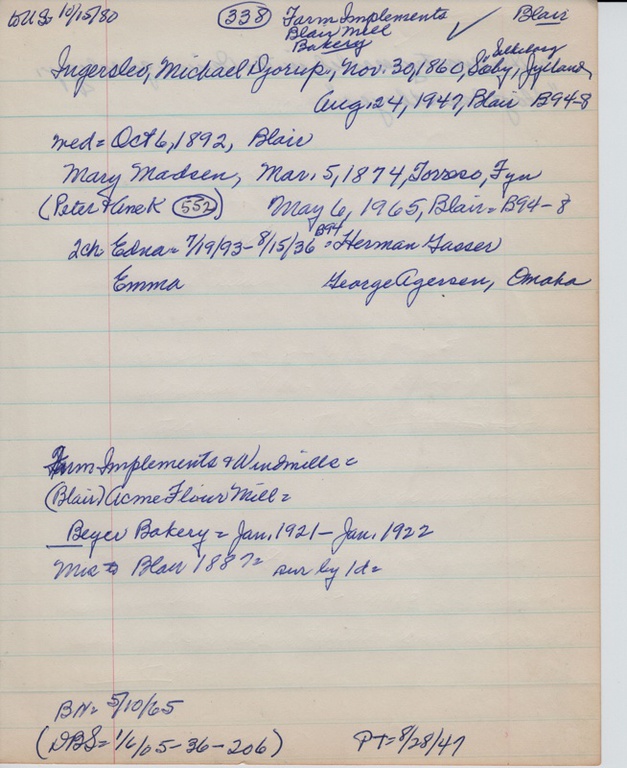 to US= 10/15/80 338 Farm Implements ✓ Blair
Blair Mill
Bakery
Ingerslev, Michael Djorup, Nov. 30, 1860, Sæby, Jylland
Aug. 24, 1947, Blair B94-8
med= Oct 6, 1892, Blair
Mary Madsen, Mar. 5, 1874, Torroso, Fyn
(Peter + Ane K 552) May 6, 1965, Blair= B94-8
2ch Edna= 7/19/93-8/15/36 B94 = Herman Gasser
Emma George Agersen, Omaha
Farm Implements + Windmills=
(Blair) Acme Flour Mill=
Beyer Bakery= Jan. 1921- Jan. 1922
Blair 1887= sur by 1d=
BN= 5/10/65
(DBS= 1/6/05-36-206) PT= 8/28/47